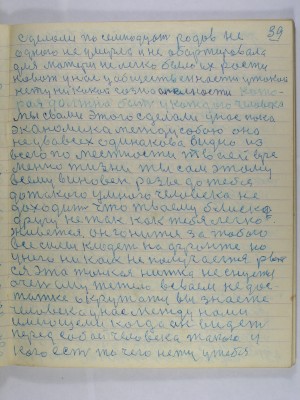 39
сделали по семнадцат родов не
одного не умерла и не абартировала
для матери не легко было их расти
новот у нас у общественности у такой
нету ни какой сознательности кото-
рая должна быть у кажто человека
мы свами этого сделали у нас пока
экономика между собою она
не у всех одинакова видно из
всего по местности твоей вре
менно жизни ты сам этому
всему виновен разве до тебя
до такого умного человека не
доходит что твоему близко-
другу не так как тебя легко
живется он гонити за тобою
все силы кладет на фронте но
у него ни как не получается рвет
ся эта тонкая нитка не спустя
отчего ему тяжело всваем недос-
татке окружату вы знаете
человека у нас между нами
имеющеми когда он видет
перед собой человека такого у
кого есть то чего нету у тебя